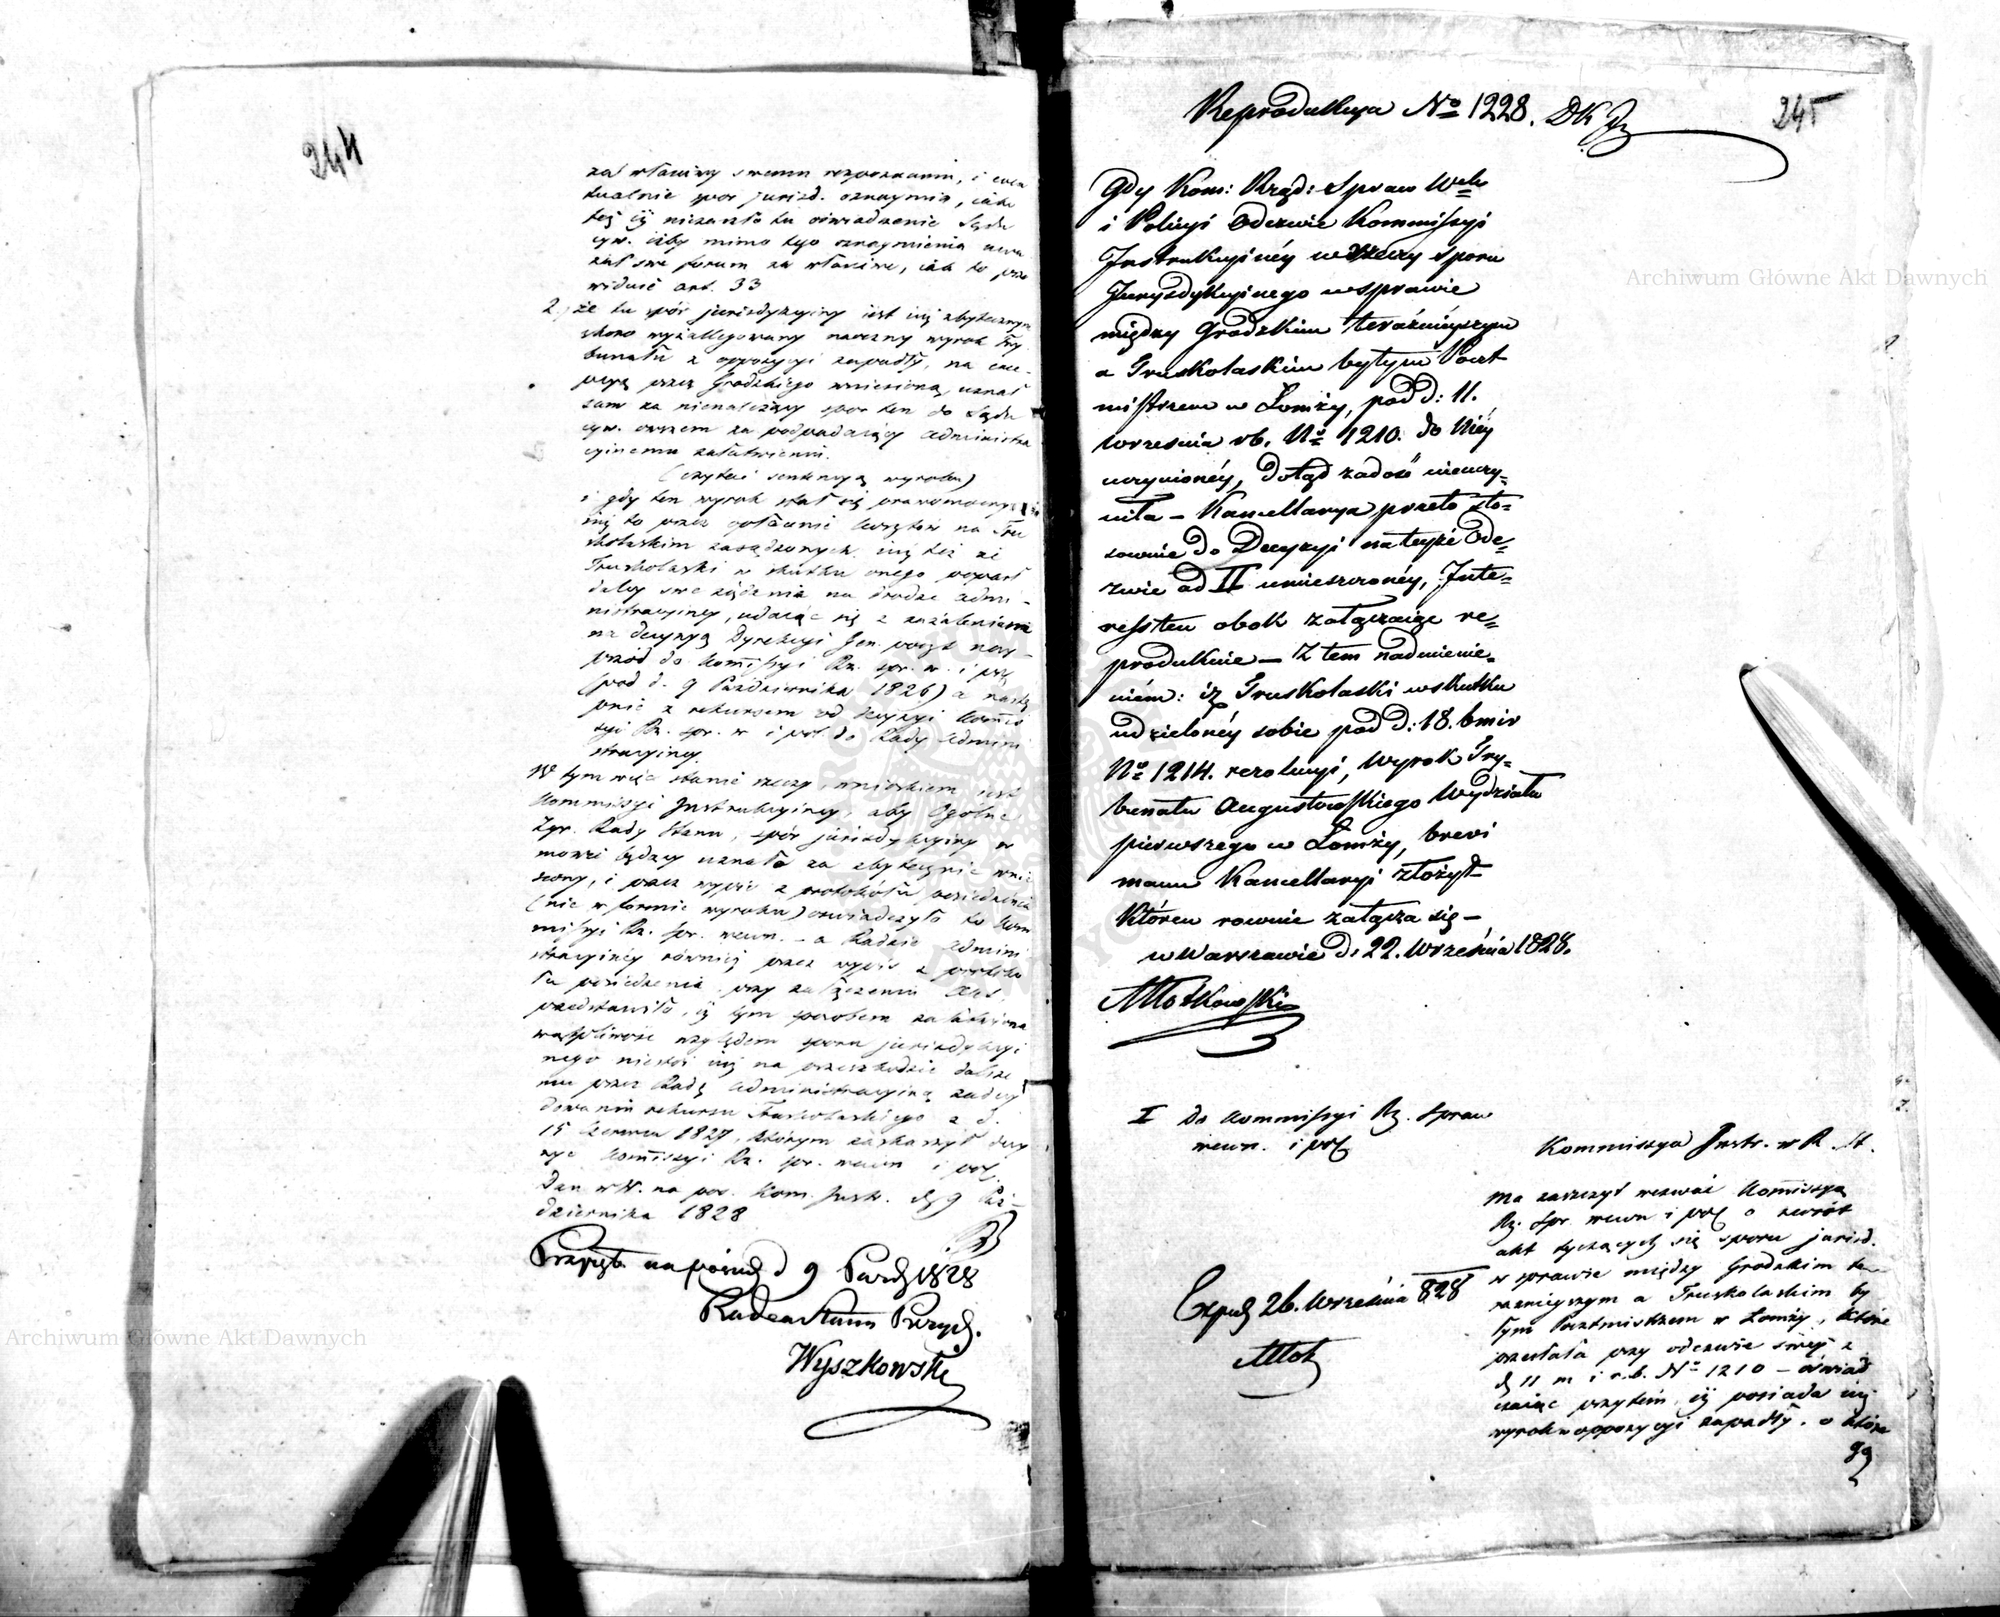 244
za właściwy swemu rozpoznaniu, i even
tualnie spor jurisd. oznaymia, iako
też iż niezaszło tu oświadczenie Sądu
cyw. iżby mimo tego oznaymienia uwa
żał swe forum za właściwe, iak to prze
widuie art. 33
2, że tu spór jurisdykcyiny iest iuż zbytecznym
skoro wyżallegowany naoczny wyrok Try
bunału z oppozycyi zapadły, na
przez Grodzkiego wniesioną, uznał
sam za nienależący spor ten do Sądu
cyw. owszem za podpadaiący administra
cyinemu załatwieniu.
(czytać sentencyą wyroku)
i gdy ten wyrok stał się prawomocnym
iuż to przez opłacenie kosztów na Tru
skolaskim zasądzonych iuż też że
Truskolaski w skutku onego poparł
daley swe żądania na drodze admi-
nistracyiney, udaiąc się z zażaleniem
na decyzyą Dyrekcyi Jen. poczt nay-
przód do Kommissyi Rz. spr. w. i pol.
(pod d. 9 Października 1826) a nastę
pnie z rekursem od decyzyi Kommis
syi Rz. spr. w i pol. do Rady Admini
stracyiney.
W tym więc stanie rzeczy, wnioskiem iest
Kommissyi Instrukcyiney, aby Ogólne
Zgr. Rady Stanu, spór jurisdykcyiny w
mowie będący uznało za zbytecznie wnie
siony, i przez wypis z protokółu posiedzenia
(nie w formie wyroku) oświadczyło to Kom
missyi Rz. spr. wewn. - a Radzie Admini
stracyiney również przez wypis z protoko
łu posiedzenia przy załączeniu akt,
przedstawiło, iż tym sposobem załatwiona
wątpliwość względem sporu jurisdykcyi
nego niestoi iuż na przeszkodzie dalsze
mu przez Radę Administracyiną zadecy
dowaniu rekursu Truskolaskiego z d.
15 Czerwca 1827, którym zaskarzył decy
zye Kommissyi Rz. spr. wewn i pol.
Dan w W. na pos. Kom. Instr. d. 9 Paź-
dziernika 1828
Przyięto na posiedz d 9 Paźdz 1828
Radca Stanu Prezyd.
Wyszkowski
Reprodukcya No 1228.
245
Gdy Kom: Rząd: Spraw Wew
i Policyi Odezwie Kommissyi
Instrukcyinéy w rzeczy sporu
Jurysdykcyinego w sprawie
między Grodzkim teraźnieyszym
a Truskolaskim byłym Poczt
mistrzem w Łomży, pod d: 11.
września rb. No 1210. do Niéy
uczynionéy, dotąd zadość nieuczy=
niła – Kancellarya przeto sto=
sownie do Decyzyi na teyże Ode=
zwie ad II umieszczonéy, Inte=
ressten obok załączaiąc re=
produkuie – Z tem nadmienie=
niem: iż Truskolaski w skutku
udzielonéy sobie pod d: 18. bmir
No 1214. rezolucyi, wyrok Try=
bunału Augustowskiego Wydziału
pierwszego w Łomży, brevi
manu Kancellaryi złożył
któren rownie załącza się –
w Warszawie d: 22. Września 1828.
Młotkowski
I do Kommissyi Rz. Spraw
wewn. i pol
Kommissya Instr. w R. St.
Ma zaszczyt wezwać Kommissyą
Rz. Spr. wewn i pol o zwrót
akt tyczących się sporu jurisd.
w sprawie między Grodzkim te
raznieyszym a Truskolaskim by
łym Pocztmistrzem w Łomży, które
przesłała przy odezwie swéy z
d. 11 m i r. b. No 1210 – oświad
czaiąc przytém iż posiada iuż
wyrok w oppozycyi zapadły, o które
go
Exped 26. Września 828
Młot
Archiwum Główne Akt Dawnych
Archiwum Główne Akt Dawnych